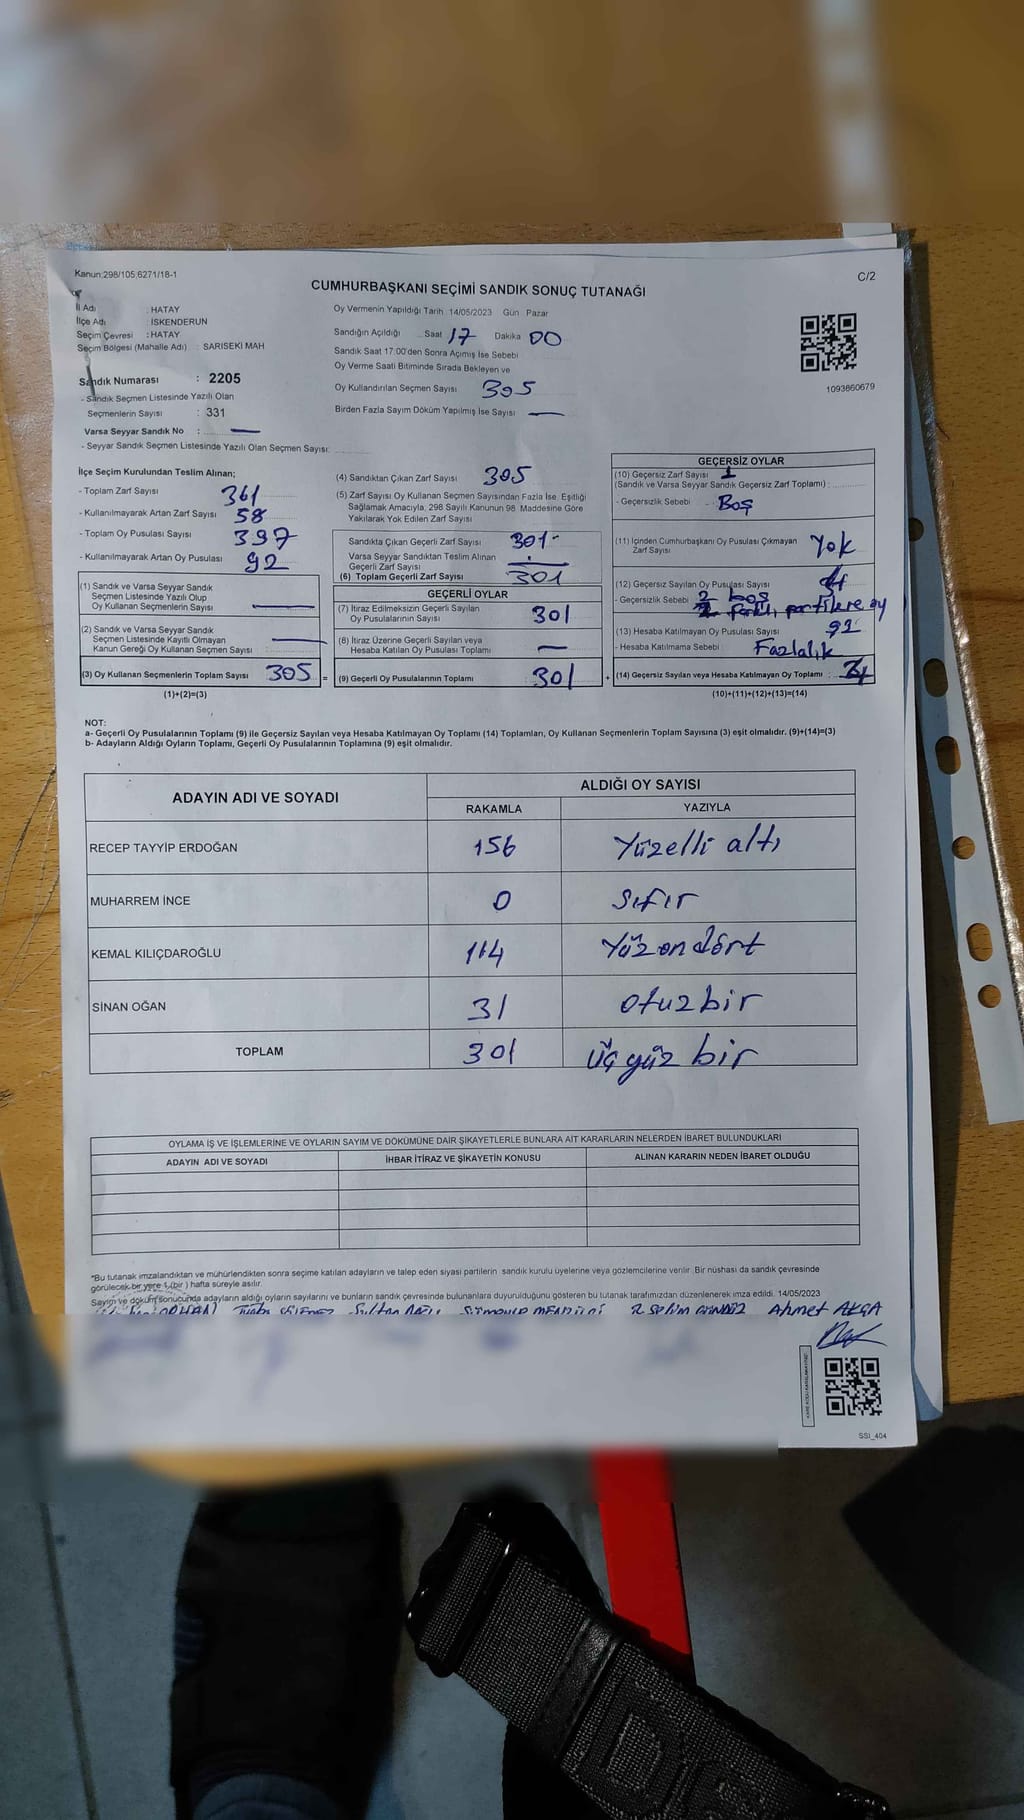 Kanun:298/105;6271/18-1
C/2
CUMHURBAŞKANI SEÇİMİ SANDIK SONUÇ TUTANAĞI
İl Adı : HATAY
İlçe Adı : İSKENDERUN
Seçim Çevresi : HATAY
Seçim Bölgesi (Mahalle Adı) : SARISEKİ MAH
Sandık Numarası : 2205
- Sandık Seçmen Listesinde Yazılı Olan
Seçmenlerin Sayısı : 331
Varsa Seyyar Sandık No : —
- Seyyar Sandık Seçmen Listesinde Yazılı Olan Seçmen Sayısı:
Oy Vermenin Yapıldığı Tarih 14/05/2023 Gün Pazar
Sandığın Açıldığı Saat 17 Dakika 00
Sandık Saat 17:00'den Sonra Açımış İse Sebebi
Oy Verme Saati Bitiminde Sırada Bekleyen ve
Oy Kullandırılan Seçmen Sayısı 305
Birden Fazla Sayım Döküm Yapılmış İse Sayısı —
1093660679
İlçe Seçim Kurulundan Teslim Alınan;
- Toplam Zarf Sayısı 361
- Kullanılmayarak Artan Zarf Sayısı 58
- Toplam Oy Pusulası Sayısı 397
- Kullanılmayarak Artan Oy Pusulası 92
(1) Sandık ve Varsa Seyyar Sandık
Seçmen Listesinde Yazılı Olup
Oy Kullanan Seçmenlerin Sayısı —
(2) Sandık ve Varsa Seyyar Sandık
Seçmen Listesinde Kayıtlı Olmayan
Kanun Gereği Oy Kullanan Seçmen Sayısı —
(3) Oy Kullanan Seçmenlerin Toplam Sayısı 305 =
(1)+(2)=(3)
(4) Sandıktan Çıkan Zarf Sayısı 305
(5) Zarf Sayısı Oy Kullanan Seçmen Sayısından Fazla İse, Eşitliği
Sağlamak Amacıyla, 298 Sayılı Kanunun 98. Maddesine Göre
Yakılarak Yok Edilen Zarf Sayısı
Sandıkta Çıkan Geçerli Zarf Sayısı 301
Varsa Seyyar Sandıktan Teslim Alınan
Geçerli Zarf Sayısı
(6) Toplam Geçerli Zarf Sayısı 301
GEÇERLİ OYLAR
(7) İtiraz Edilmeksizin Geçerli Sayılan
Oy Pusulalarının Sayısı 301
(8) İtiraz Üzerine Geçerli Sayılan veya
Hesaba Katılan Oy Pusulası Toplamı —
(9) Geçerli Oy Pusulalarının Toplamı 301 +
GEÇERSİZ OYLAR
(10) Geçersiz Zarf Sayısı 1
(Sandık ve Varsa Seyyar Sandık Geçersiz Zarf Toplamı) :
- Geçersizlik Sebebi Boş
(11) İçinden Cumhurbaşkanı Oy Pusulası Çıkmayan
Zarf Sayısı Yok
(12) Geçersiz Sayılan Oy Pusulası Sayısı
- Geçersizlik Sebebi 2 boş
2 farklı partilere oy
(13) Hesaba Katılmayan Oy Pusulası Sayısı 92
- Hesaba Katılmama Sebebi Fazlalık
(14) Geçersiz Sayılan veya Hesaba Katılmayan Oy Toplamı :
(10)+(11)+(12)+(13)=(14)
NOT:
a- Geçerli Oy Pusulalarının Toplamı (9) ile Geçersiz Sayılan veya Hesaba Katılmayan Oy Toplamı (14) Toplamları, Oy Kullanan Seçmenlerin Toplam Sayısına (3) eşit olmalıdır. (9)+(14)=(3)
b- Adayların Aldığı Oyların Toplamı, Geçerli Oy Pusulalarının Toplamına (9) eşit olmalıdır.
ADAYIN ADI VE SOYADI
ALDIĞI OY SAYISI
RAKAMLA YAZIYLA
RECEP TAYYİP ERDOĞAN 156 Yüzelli altı
MUHARREM İNCE 0 Sıfır
KEMAL KILIÇDAROĞLU 114 Yüzondört
SİNAN OĞAN 31 otuzbir
TOPLAM 301 üçyüz bir
OYLAMA İŞ VE İŞLEMLERİNE VE OYLARIN SAYIM VE DÖKÜMÜNE DAİR ŞİKAYETLERLE BUNLARA AİT KARARLARIN NELERDEN İBARET BULUNDUKLARI
ADAYIN ADI VE SOYADI İHBAR İTİRAZ VE ŞİKAYETİN KONUSU ALINAN KARARIN NEDEN İBARET OLDUĞU
*Bu tutanak imzalandıktan ve mühürlendikten sonra seçime katılan adayların ve talep eden siyasi partilerin sandık kurulu üyelerine veya gözlemcilerine verilir. Bir nüshası da sandık çevresinde
görülecek bir yere 1 (bir) hafta süreyle asılır.
Sayım ve döküm sonucunda adayların aldığı oyların sayılarını ve bunların sandık çevresinde bulunanlara duyurulduğunu gösteren bu tutanak tarafımızdan düzenlenerek imza edildi. 14/05/2023
Ahmet AKÇA
SSI_404